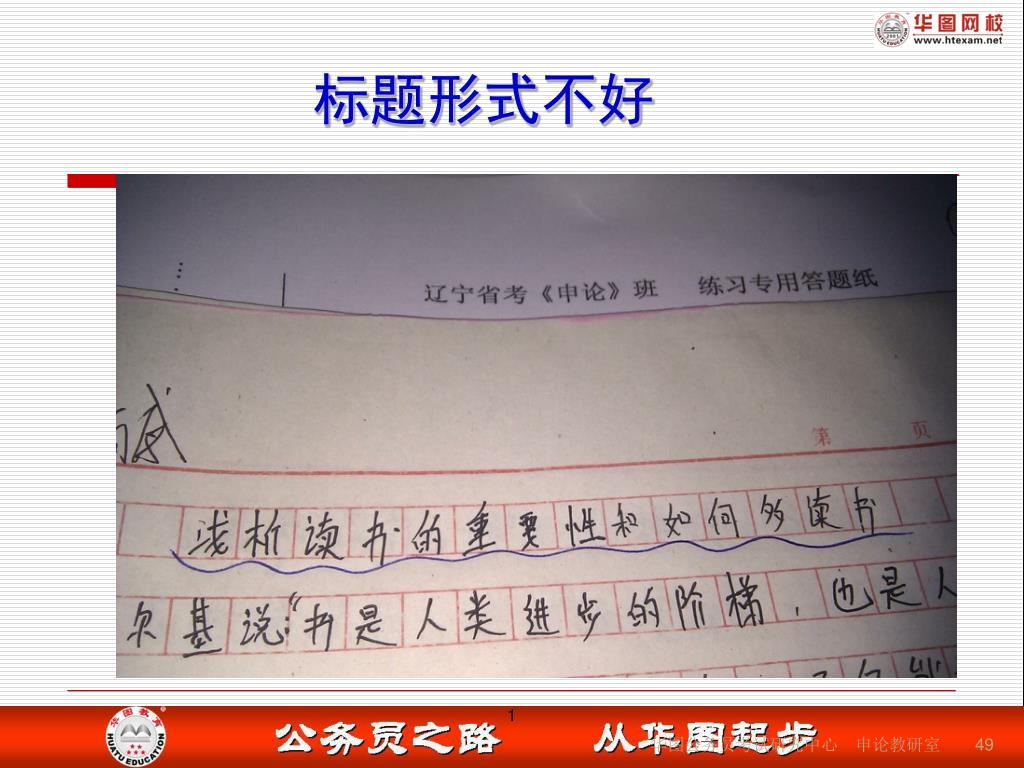 华图网校
www.htexam.net
标题形式不好
辽宁省考《申论》班 练习专用答题纸
第 页
浅析读书的重要性和如何多读书
尔基说:“书是人类进步的阶梯,也是人
1
华图教育
HUATU EDUCATION
公务员之路 从华图起步
申论教研室 49